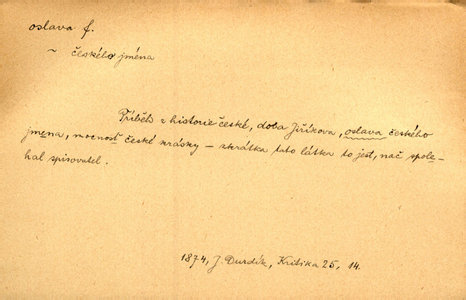 oslava f.
~ českého jména
Příběh z historie české, doba Jiříkova, oslava českého
jmena, mocnosť české krásky – zkrátka tato látka to jest, nač spole-
hal spisovatel.
1874, J. Durdík, Kritika 25, 14.